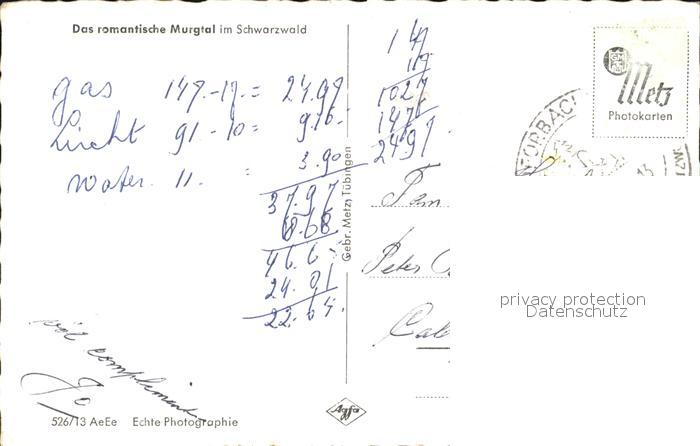 Das romantische Murgtal im Schwarzwald
gas 147.-17.= 24.99
Licht 91.-10= 9.10.-
Water. 11. : 3.90
37.97
8.68
46.65
24.01
22.64.
147
17
1027
147
2491
Metz
Photokarten
Gebr. Metz, Tübingen
Fam
Peter
privacy protection
Datenschutz
complimenten
Jo
Agfa
526/13 AeEe Echte Photographie